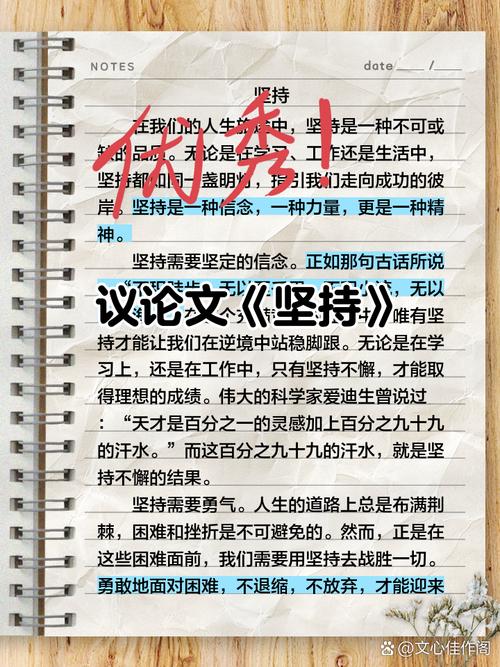 NOTES
date / 
坚持
优秀!
在我们的人生旅途中，坚持是一种不可或
缺的品质。无论是在学习、工作还是生活中，
坚持都如同一盏明灯，指引我们走向成功的彼
岸。坚持是一种信念，一种力量，更是一种精
神。
坚持需要坚定的信念。正如那句古话所说
无以
议论文《坚持》
唯有坚
持才能让我们在逆境中站稳脚跟。无论是在学
习上，还是在工作中，只有坚持不懈，才能取
得理想的成绩。伟大的科学家爱迪生曾说过
：“天才是百分之一的灵感加上百分之九十九
的汗水。”而这百分之九十九的汗水，就是坚
持不懈的结果。
坚持需要勇气。人生的道路上总是布满荆
棘，困难和挫折是不可避免的。然而，正是在
这些困难面前，我们需要用坚持去战胜一切。
勇敢地面对困难，不退缩，不放弃，才能迎来
文心佳作阁